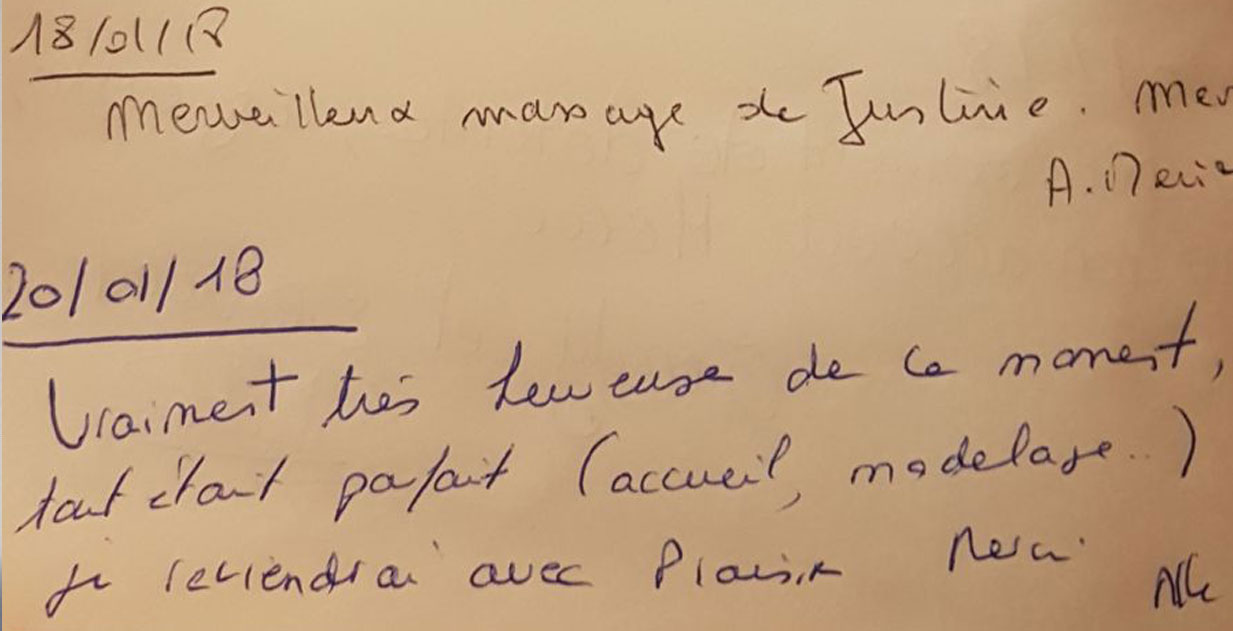 18/01/18
Merveilleux massage de Justine. Mer
A. Marie
20/01/18
Vraiment très heureuse de ce moment,
tout était parfait (accueil, modelage..)
je reviendrai avec Plaisir Merci